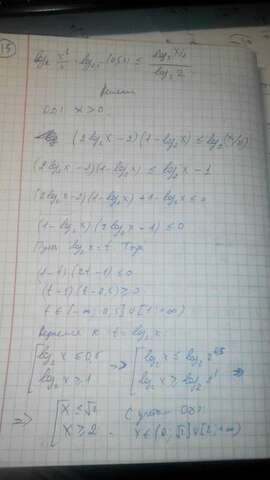 15
log₂ x²/4 · log₀,₅ (0,5x) ≤ log₃ x/2 / log₃ 2
Решение
ОДЗ x>0
(2log₂x-2)(1-log₂x) ≤ log₂(x/2)
(2log₂x-2)(1-log₂x) ≤ log₂x-1
(2log₂x-2)(1-log₂x)+1-log₂x≤0
(1-log₂x)(2log₂x-1)≤0
Пусть log₂x=t. Тогда
(1-t)(2t-1)≤0
(t-1)(t-0,5)≥0
t∈(-∞; 0,5]∪[1; +∞)
Вернемся к t=log₂x:
[log₂x≤0,5 => [log₂x≤log₂2^0,5
[log₂x≥1 [log₂x≥log₂2¹ =>
=> [x≤√2 С учетом ОДЗ:
[x≥2 x∈(0;√2]∪[2;+∞)